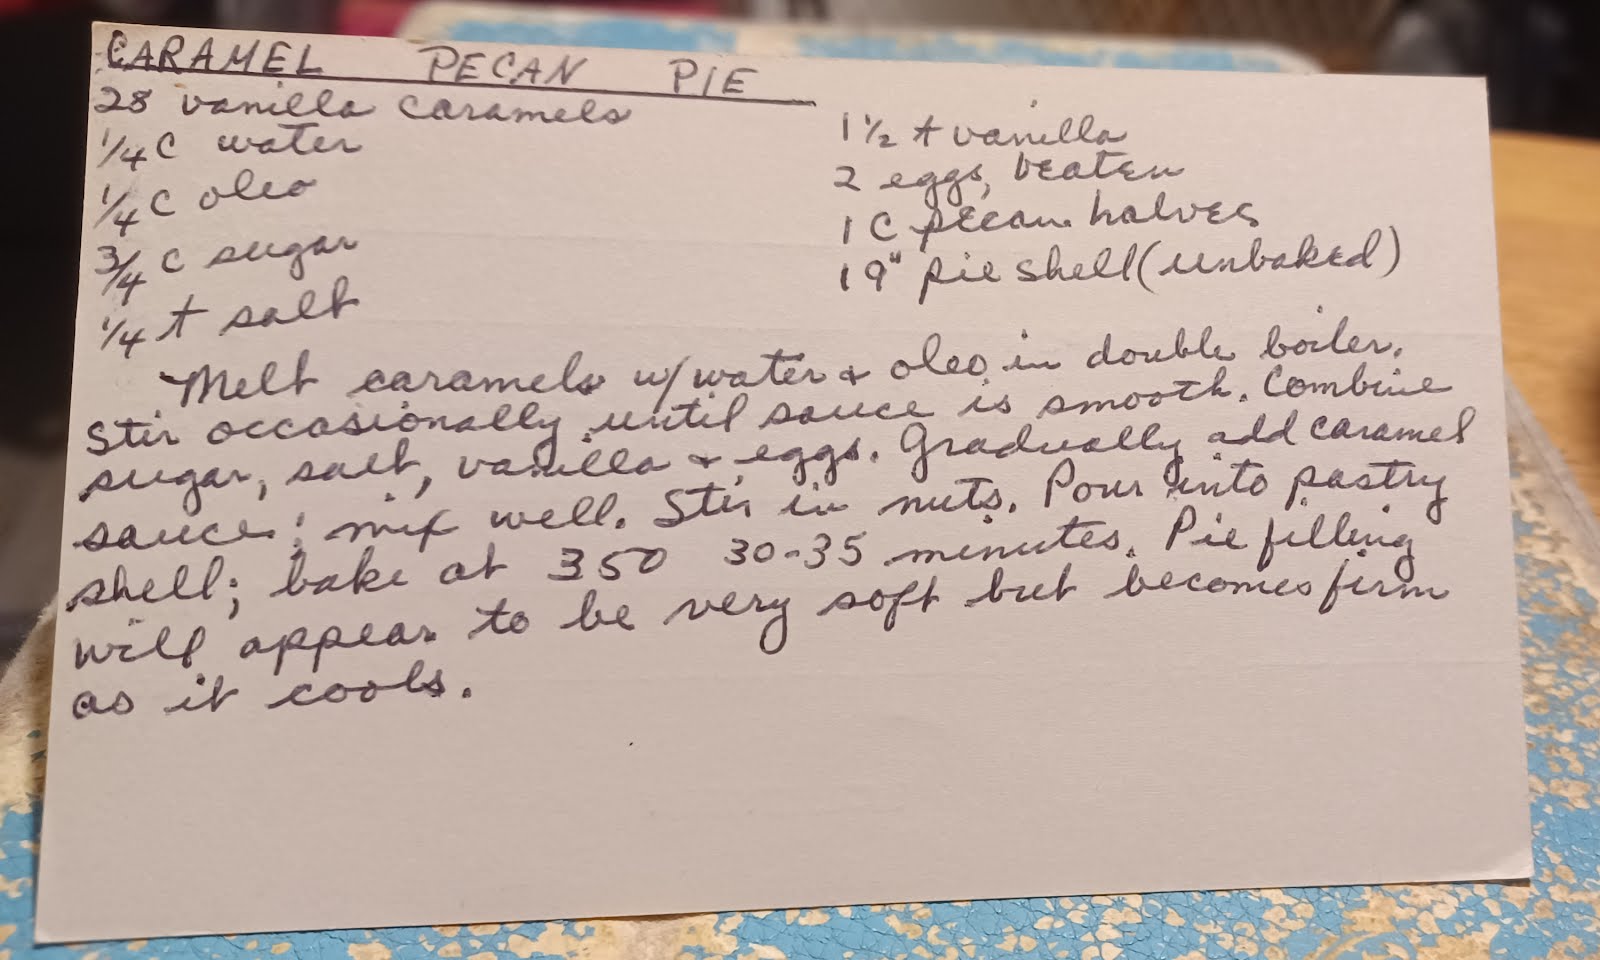 CARAMEL PECAN PIE
28 vanilla caramels
1/4 C water
1/4 C oleo
3/4 C sugar
1/4 t salt
1 1/2 t vanilla
2 eggs, beaten
1 C pecan halves
1 9" pie shell (unbaked)
Melt caramels w/ water & oleo in double boiler.
Stir occasionally until sauce is smooth. Combine
sugar, salt, vanilla & eggs. Gradually add caramel
sauce; mix well. Stir in nuts. Pour into pastry
shell; bake at 350 30-35 minutes. Pie filling
will appear to be very soft but becomes firm
as it cools.